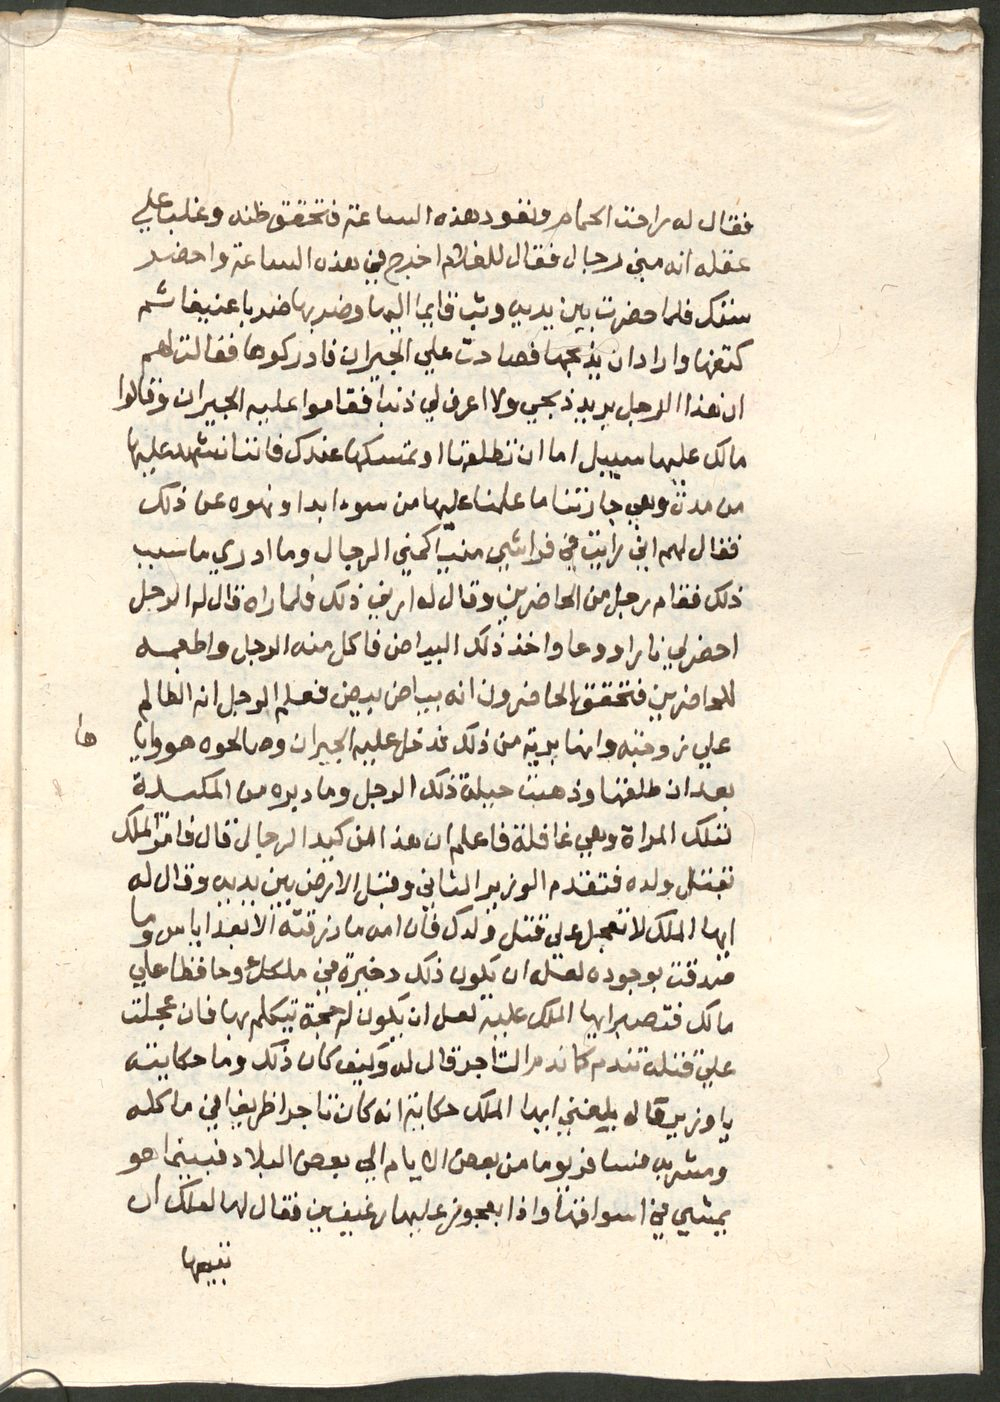 فقال له راحت الحمام وتعود هذه الساعة فتحقق ظنه وغلب علي
عقله انه مني رجال فقال للغلام اخرج في هذه الساعة واحضر
ستك فلما حضرت بين يديه وثب قايما اليها وضربها ضربا عنيفا ثم
كتفها واراد ان يذبحها فصاحت علي الجيران فادركوها فقالت لهم
ان هذا الرجل يريد ذبحي ولا اعرف لي ذنبا فقاموا عليه الجيران وقالوا
مالك عليها سبيل اما ان تطلقها او تمسكها عندك فاننا نشهد عليها
من مدة وهي جارتنا ما علمنا عليها من سوء ابدا ونهوه عن ذلك
فقال لهم اني رايت في فراشي منيا كمني الرجال وما ادري ما سبب
ذلك فقام رجل من الحاضرين وقال له اريني ذلك فلما راه قال له الرجل
احضر لي نارا ووعا واخذ ذلك البياض فاكل منه الرجل واطعمه
للحاضرين فتحقق الحاضرون انه بياض بيض فعلم الرجل انه الظالم
علي زوجته وانها برية من ذلك فدخل عليه الجيران وصالحوه هو واياها
بعد ان طلقها وذهبت حيلة ذلك الرجل وما دبره من المكيدة
لتلك المراة وهي غافلة فاعلم ان هذا من كيد الرجال قال فامر الملك
بقتل ولده فتقدم الوزير الثاني وقبل الارض بين يديه وقال له
ايها الملك لا تعجل علي قتل ولدك فان امه ما رزقته الا بعد اياس وما
صدقت بوجوده لعله ان يكون ذلك دخيرة في ملكك وحافظا علي
مالك فتصبر ايها الملك عليه لعل ان يكون له حجة يتكلم بها فان عجلت
علي قتله تندم كما ندم التاجر قال له وكيف كان ذلك وما حكايته
يا وزير قال له بلغني ايها الملك حكاية انه كان تاجرا ظريفا في ماكله
ومشربه فسافر يوما من بعض الايام الي بعض البلاد فبينما هو
يمشي في اسواقها واذا بعجوز عليها رغيفين فقال لها لعلك ان
تبيعها